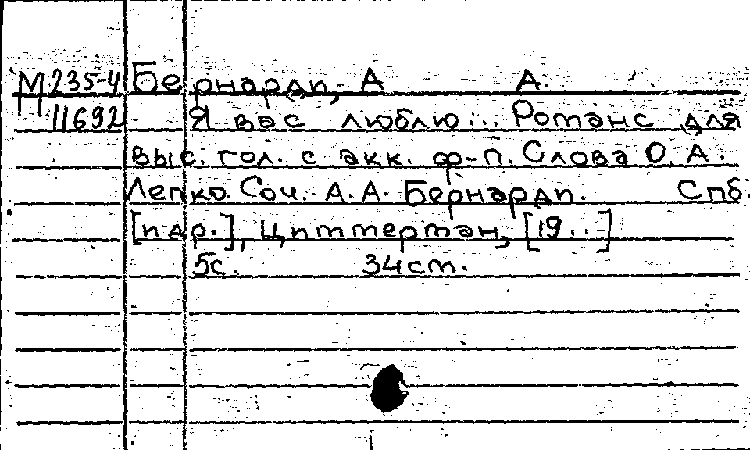 М 235-4 Бернарди, А. А.
11692 Я вас люблю... Романс для
выс. гол. с акк. ф-п. Слова О. А.
Лепко. Соч. А. А. Бернарди. Спб.
[и др.], Циммерман, [19..]
5с. 34см.